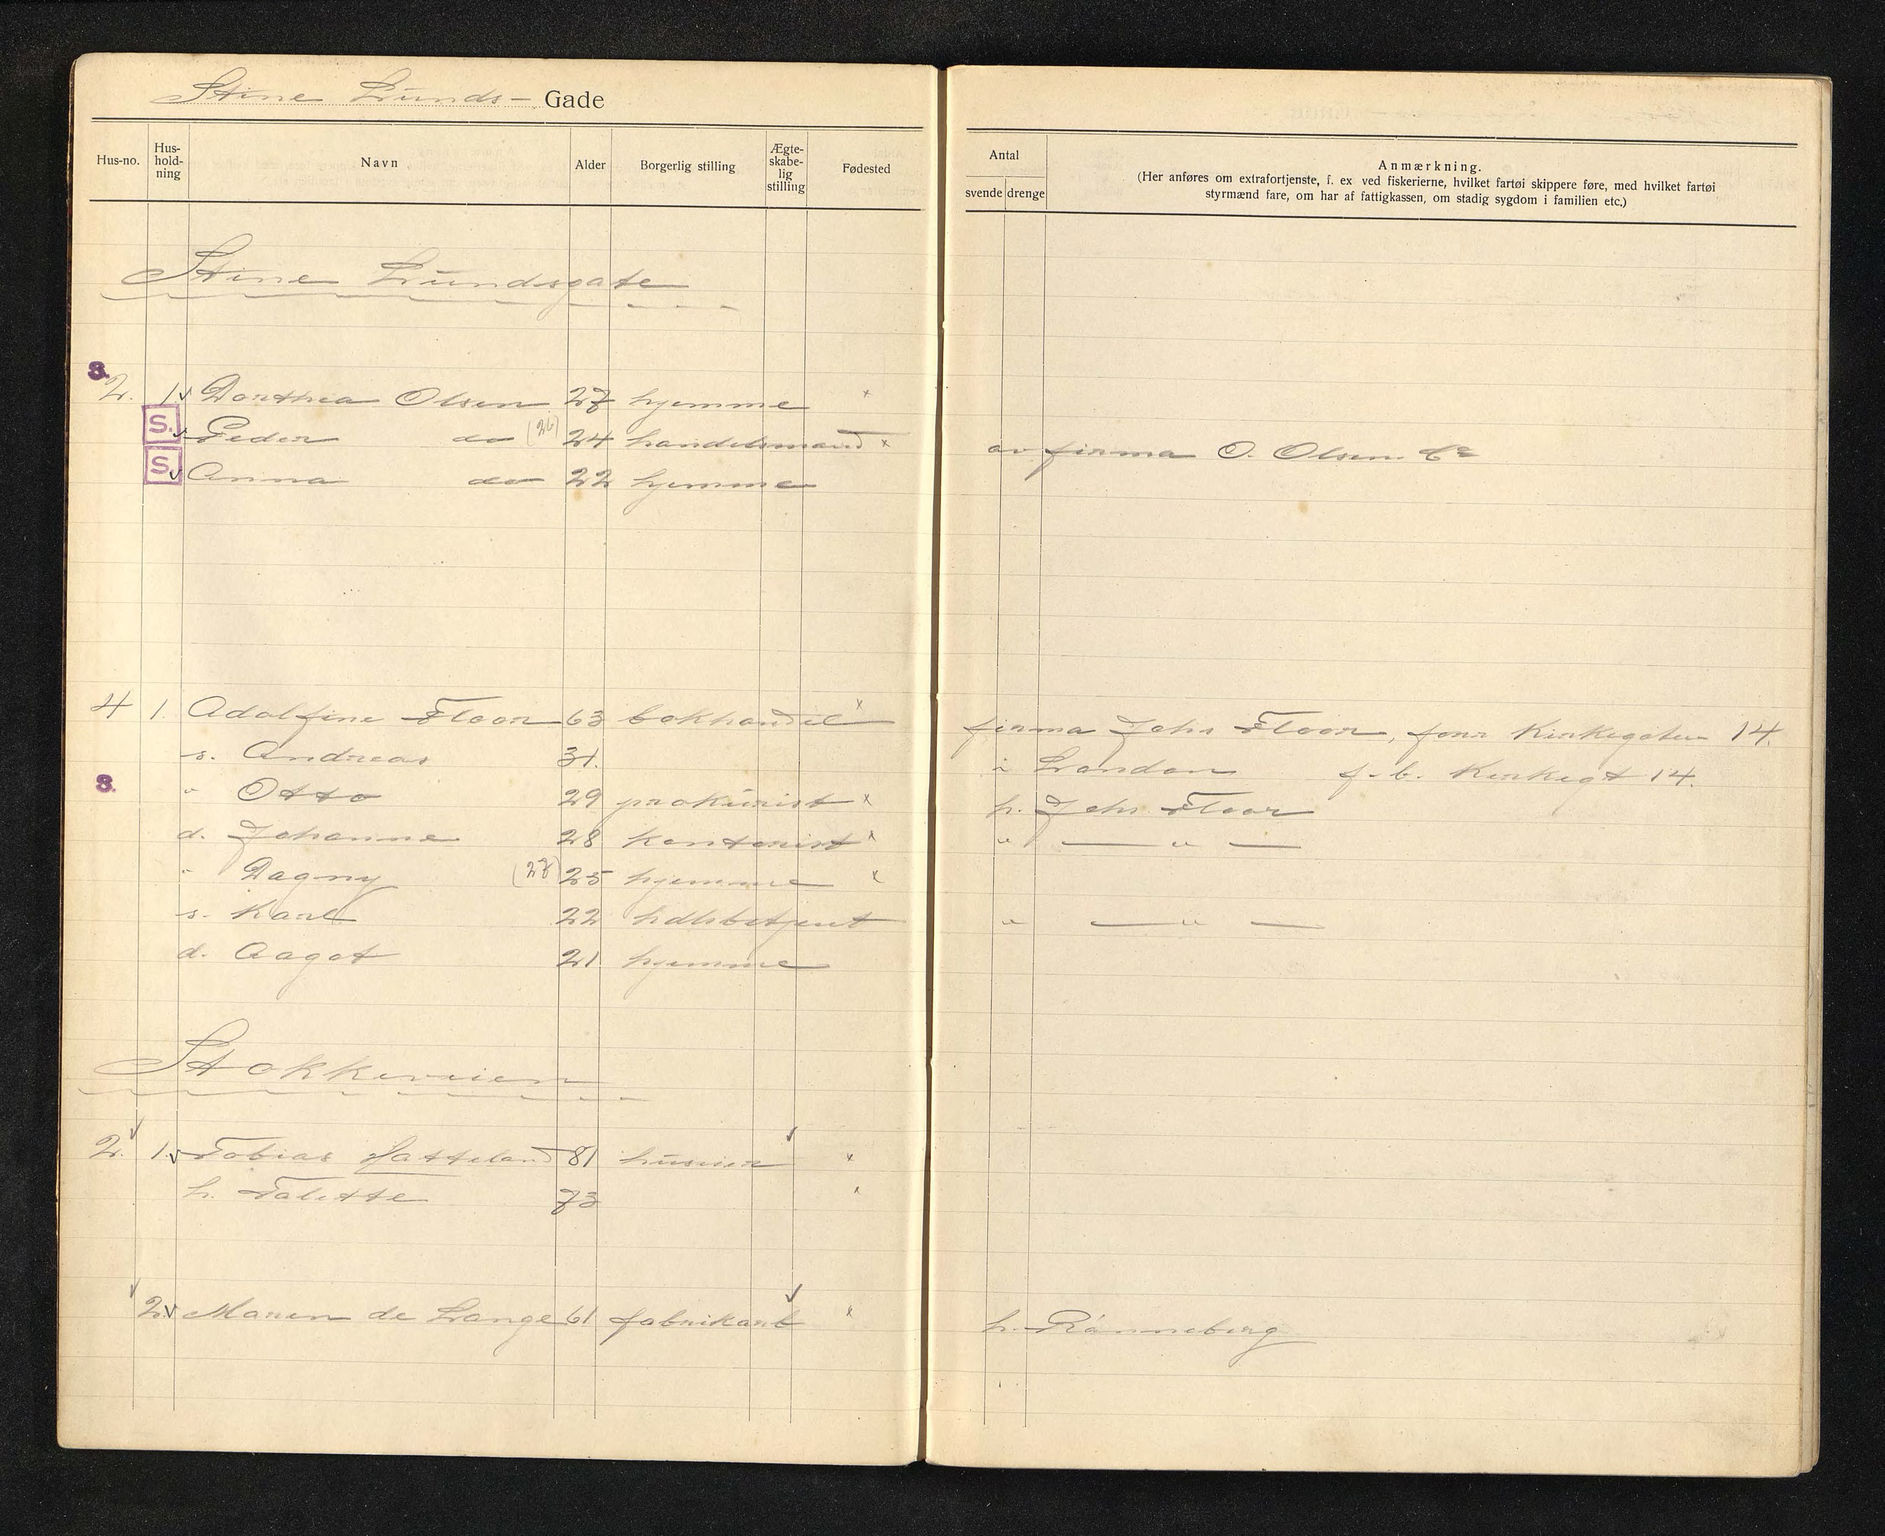 Stine Lunds - Gade
Hus-no. Hus-hold-ning Navn Alder Borgerlig stilling Ægte-skabe-lig stilling Fødested
Antal svende drenge Anmærkning.
(Her anføres om extrafortjenste, f. ex ved fiskerierne, hvilket fartøi skippere føre, med hvilket fartøi
styrmænd fare, om har af fattigkassen, om stadig sygdom i familien etc.)
Stine Lundsgate
S.
2. 1 Dorthea Olsen 27 hjemme x
S. Peder do (26) 24 handelsmand x av firma O. Olsen Co
S. Anna do 22 hjemme
4 1. Adolfine Floor 63 bokhandel x firma Johs Floor, forr Kirkegaten 14.
s. Andreas 31. i London f. b. Kirkegt 14.
S. " Otto 29 prokurist x h. Johs Floor
d. Johanne 28 kontorist x " — " —
" Dagny (27) 25 hjemme x
s. Karl 22 hdlsbetjent " — " —
d. Aagot 21 hjemme
Stokkeveien
2. 1. Tobias Hatteland 81 huseier x
h. Talette 73 x
2. Maren de Lange 61 fabrikarb x h. Rønneberg